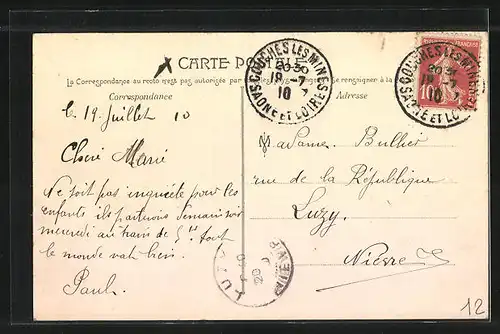 CARTE POSTALE
La Correspondance au recto n'est pas autorisée par se renseigner à la
Correspondance
Adresse
COUCHES LES MINES
20 30
19 - 7
10
SAONE ET LOIRE
COUCHES LES MINES
19
10
SAONE ET LOIRE
10
le 19 Juillet 10
Chère Marie
Ne soit pas inquiète pour les
enfants ils partirons demain soir
mercredi au train de 5h tout
le monde va bien.
Paul.
Madame Bullier
rue de la République
Luzy
Nièvre
LUZY
NIEVRE
20
12